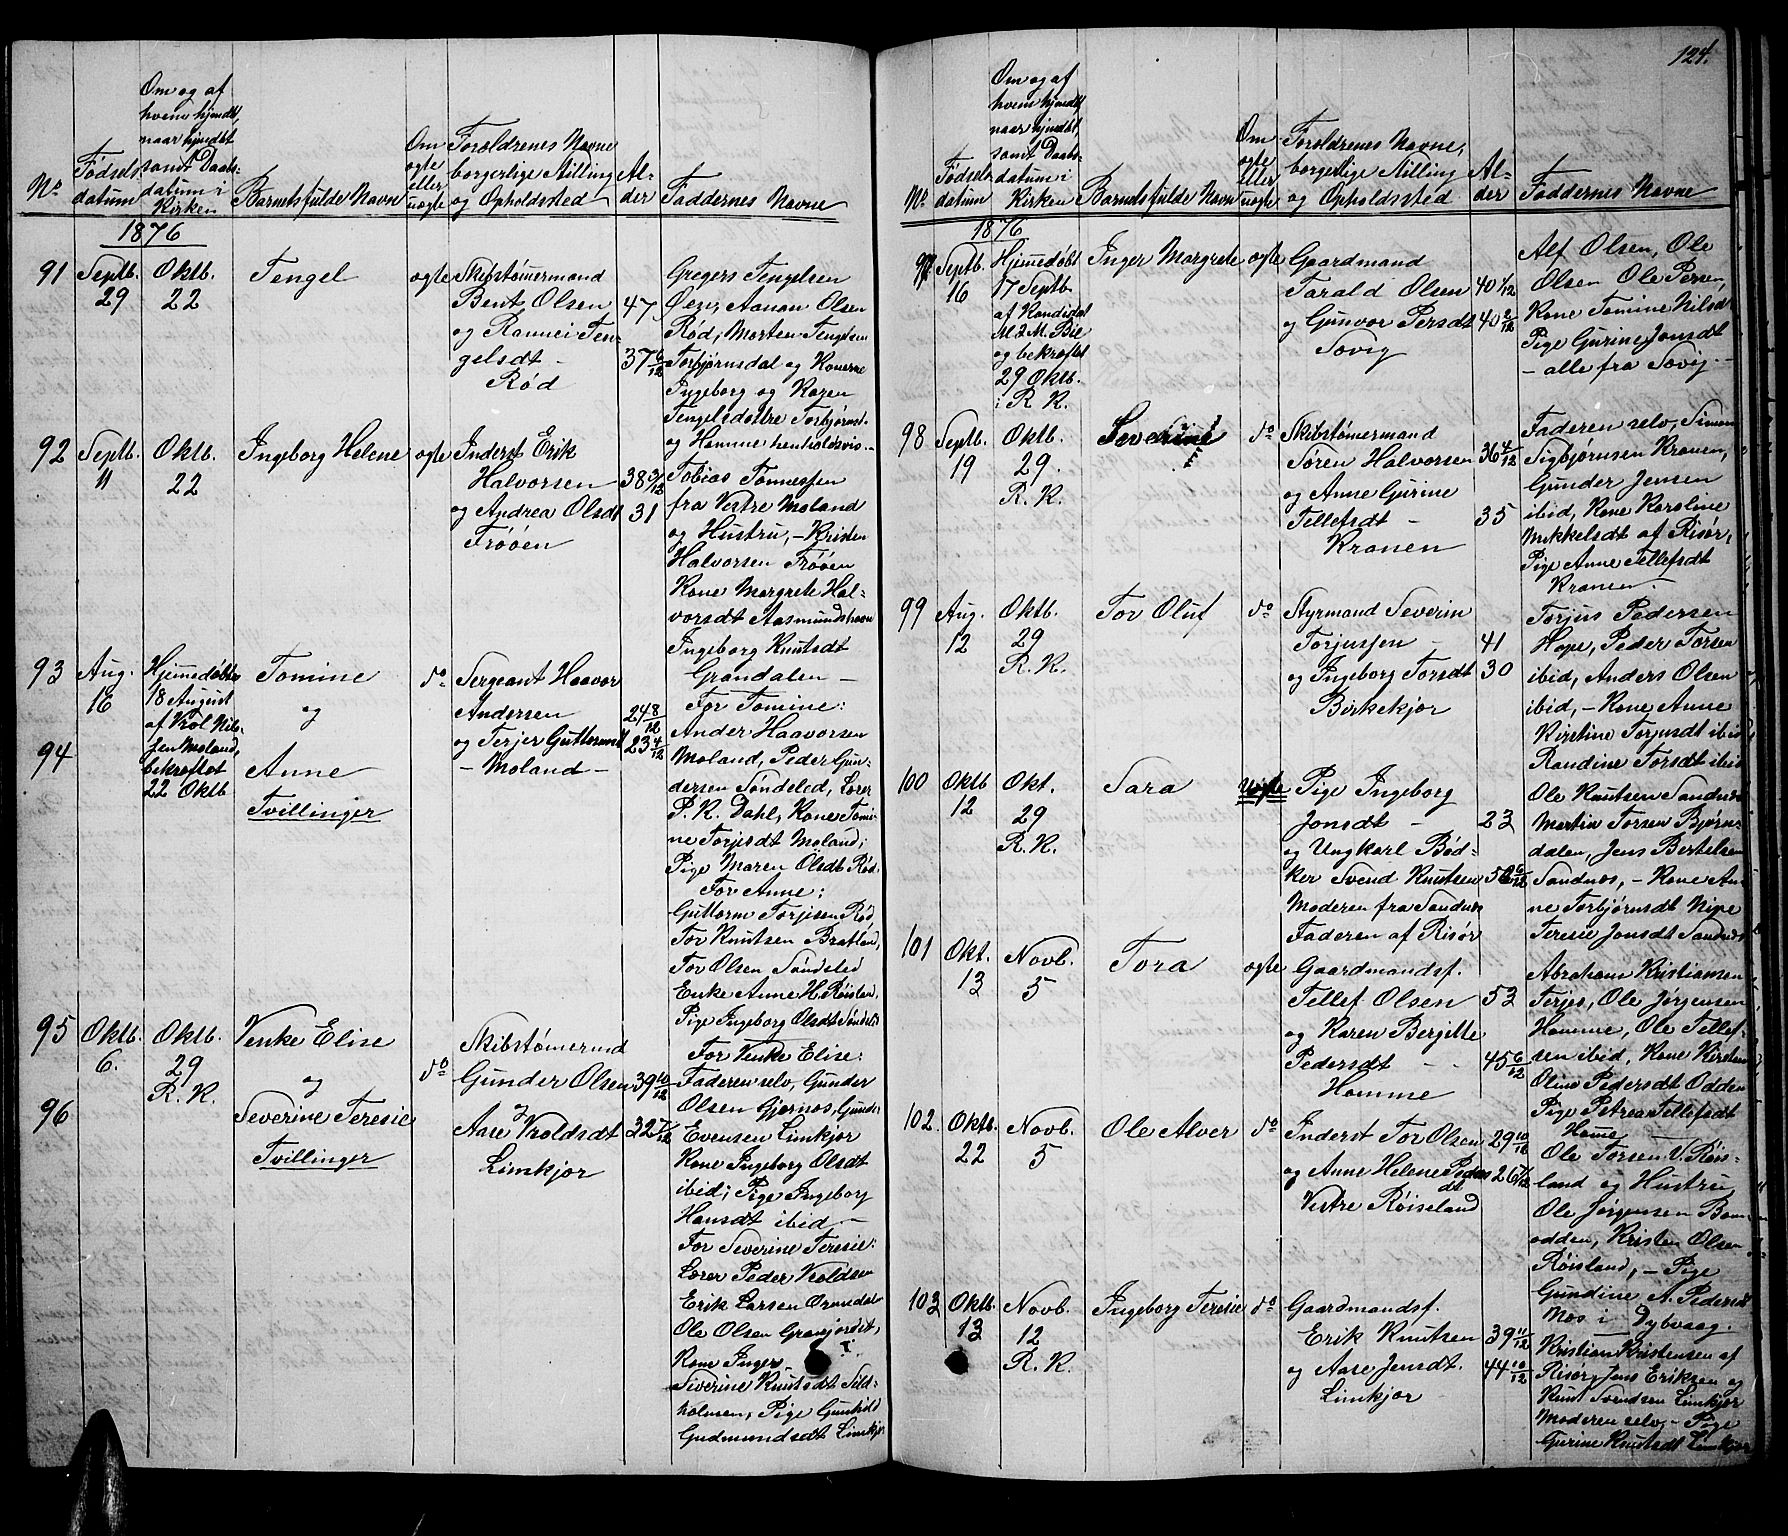 124.
No
Fødsels-
datum
Om og af
hvem hjmdt,
naar hjmdøbt
samt Daabs-
datum i
Kirken
Barnets fulde Navn
Om
ægte
eller
uægte
Forældrenes Navne
borgerlige Stilling
og Opholdssted
Al-
der
Faddernes Navne
1876
91
Septb.
29
Oktb.
22
Tengel
ægte
Skibstømmermand
Bent Olsen
og Rannei Ten-
gelsdt -
Rød
47
37 6/12
Gregers Tengelsen
Aanan Olsen
Rød, Morten Tengelsen
Torbjørnsdal og Konerne
Ingeborg og Karen
Tengelsdøttre Torbjørnsd.
og Hamme henholdsvis -
92
Septb.
11
Oktb.
22
Ingeborg Helene
ægte
Inderst Erik
Halvorsen
og Andrea Olsdt
Frøøen
38 3/12
31
Tobias Tønnesen
fra Vestre Moland
og Hustru, - Kristen
Halvorsen Frøøen
Kone Margrete Hal-
vorsdt Aasmundshavn
Ingeborg Knutsdt
Grandalen -
93
Aug.
16
Hjemmedøbtes
18 August
af Vrol Nil-
sen Moland,
bekræftet
22 Oktb
Tomine
og
94
Anne
Tvillinger
do
Sergeant Haavor
Andersen
og Terjer Guttormsdt
- Moland -
24 8/12
23 4/12
For Tomine:
Ander Haavorsen
Moland, Peder Gun-
dersen Søndeled, Lærer
P. K. Dahl, Kone Tomi-
ne Torjesdt Moland;
Pige Maren Olsdt Rød.
For Anne:
Guttorm Torjesen Rød,
Tor Knutsen Bratland,
Tor Olsen Søndeled
Enke Anne H. Røisland,
Pige Ingeborg Olsdt Søndeled
95
Oktb.
6.
Oktb.
29
R. K.
Venke Elise
og
96
Severine Teresie
Tvillinger
do
Skibstømermnd
Gunder Olsen
og
Aase Vroldsdt
Limkjær
39 10/12
32 7/12
For Venke Elise:
Faderen selv, Gunder
Olsen Gjernæs, Gunder
Evensen Limkjær
Kone Ingeborg Olsdt
ibid; Pige Ingeborg
Hansdt ibid -
For Severine Teresie:
Lærer Peder Vroldsen
Erik Larsen
Ole Olsen
Kone Inger
Severine Knutsdt Sild-
holmen, Pige Gunhild
Gudmundsdt Limkjær
No
Fødsels-
datum
Om og af
hvem hjmdøbt
naar hjmdøbt,
samt Daabs-
datum i
Kirken
Barnets fulde Navn
Om
ægte
eller
uægte
Forældrenes Navne,
borgerlige Stilling
og Opholdssted
Al-
der
Faddernes Navne
1876
97
Septb.
16
Hjemmedøbt
17 Septb.
af Kandidat
M. L. M. Bie
og bekræftet
29 Oktb.
i R. K.
Inger Margrete
ægte
Gaardmand
Tarald Olsen
og Gunvor Persdt
Søvig
40 1/12
40 2/12
Alf Olsen, Ole
Olsen Ole Persen,
Kone Tomine Nilsdt
Pige Gurine Jonsdt
- alle fra Søvig -
98
Septb.
19
Oktb.
29.
R. K.
Severine
do
Skibstømermand
Søren Halvorsen
og Anne Gurine
Tellefsdt -
Kranen
36 4/12
35
Faderen selv, Simon
Sigbjørnsen Kranen,
Gunder Jensen
ibid, Kone Karoline
Mikkelsdt af Risør,
Pige Anne Tellefsdt
Kranen -
99
Aug.
12
Oktb.
29
R. K.
Tov Oluf
do
Styrmand Severin
Torjussen -
og Ingeborg Torsdt
Birkekjær
41
30
Torjus Pedersen
Hope, Peder Torsen
ibid, Anders Olsen
ibid, - Kone Anne
Kirstine Torjusdt ibid
Randine Torsdt ibid
100
Oktb
12
Okt.
29
R. K.
Sara
Uægte
Pige Ingeborg
Jonsdt -
og Ungkarl Bød-
ker Svend Knutsen
Moderen fra Sandnæs
Faderen af Risør
23
Ole Knutsen Sandnæs
Martin Torsen Bjørns-
dalen, Jens Bertelsen
Sandnæs, - Kone An-
ne Torbjørnsdt Nipe
Teresie Jonsdt Sandnæs
101
Okt.
13
Novb.
5
Tora
ægte
Gaardmandsf.
Tellef Olsen
og Karen Bergitte
Pedersdt -
Homme
53
45 6/12
Abraham Kristiansen
Terjes, Ole Jørgensen
Homme, Ole Tellef-
sen ibid, Kone Kirsten
Oline Pedersdt Odden
Pige Petrea Tellefsdt
Home -
102.
Oktb.
22
Novb.
5
Ole Alver
do
Inderst Tor Olsen
og Anne Helene Peders
dt
Vestre Røiseland
29 10/12
26 7/12
Ole Torsen V. Røis-
land og Hustru
Ole Jørgensen Bom-
odden, Kristen Olsen
Røisland, - Pige
Gundine A. Pedersdt
Næs i Dybvaag.
103
Oktb.
13
Novb.
12
R. K.
Ingeborg Teresie
do
Gaardmandsf.
Erik Knutsen
og Aase Jensdt.
Limkjær
39 11/12
44 10/12
Kristian Kristensen af
Risør, Jens Eriksen og
Knut Svendsen Limkjær
Moderen selv, - Pige
Gurine Knutsdt Limkjær